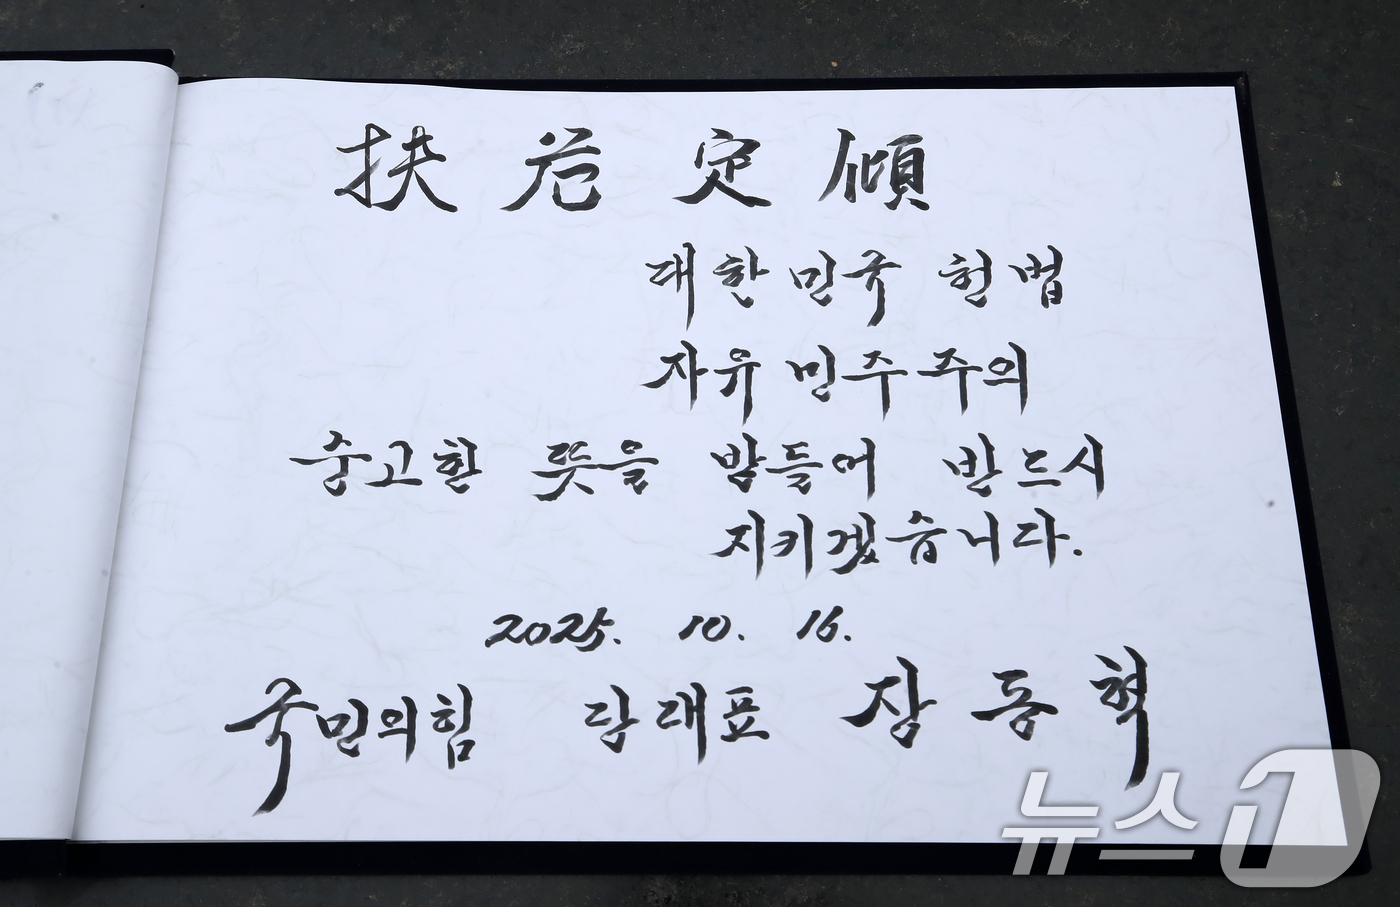 扶危定傾
대한민국 헌법
자유민주주의
숭고한 뜻을 받들어 반드시
지키겠습니다.
2025. 10. 16.
국민의힘 당대표 장동혁
뉴스1